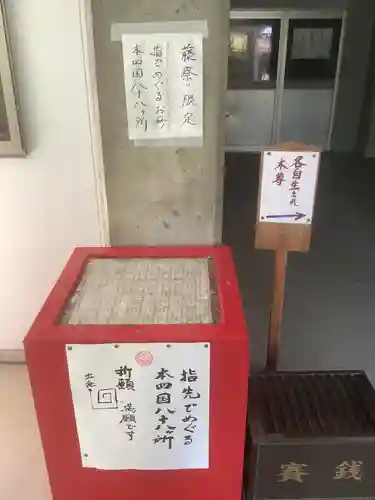 藤祭り限定
指先でめぐるお
本四国八十八ヶ所
各自生まれ
本尊
指先でめぐる
本四国八十八ヶ所
祈願
為願です
出発
賽銭